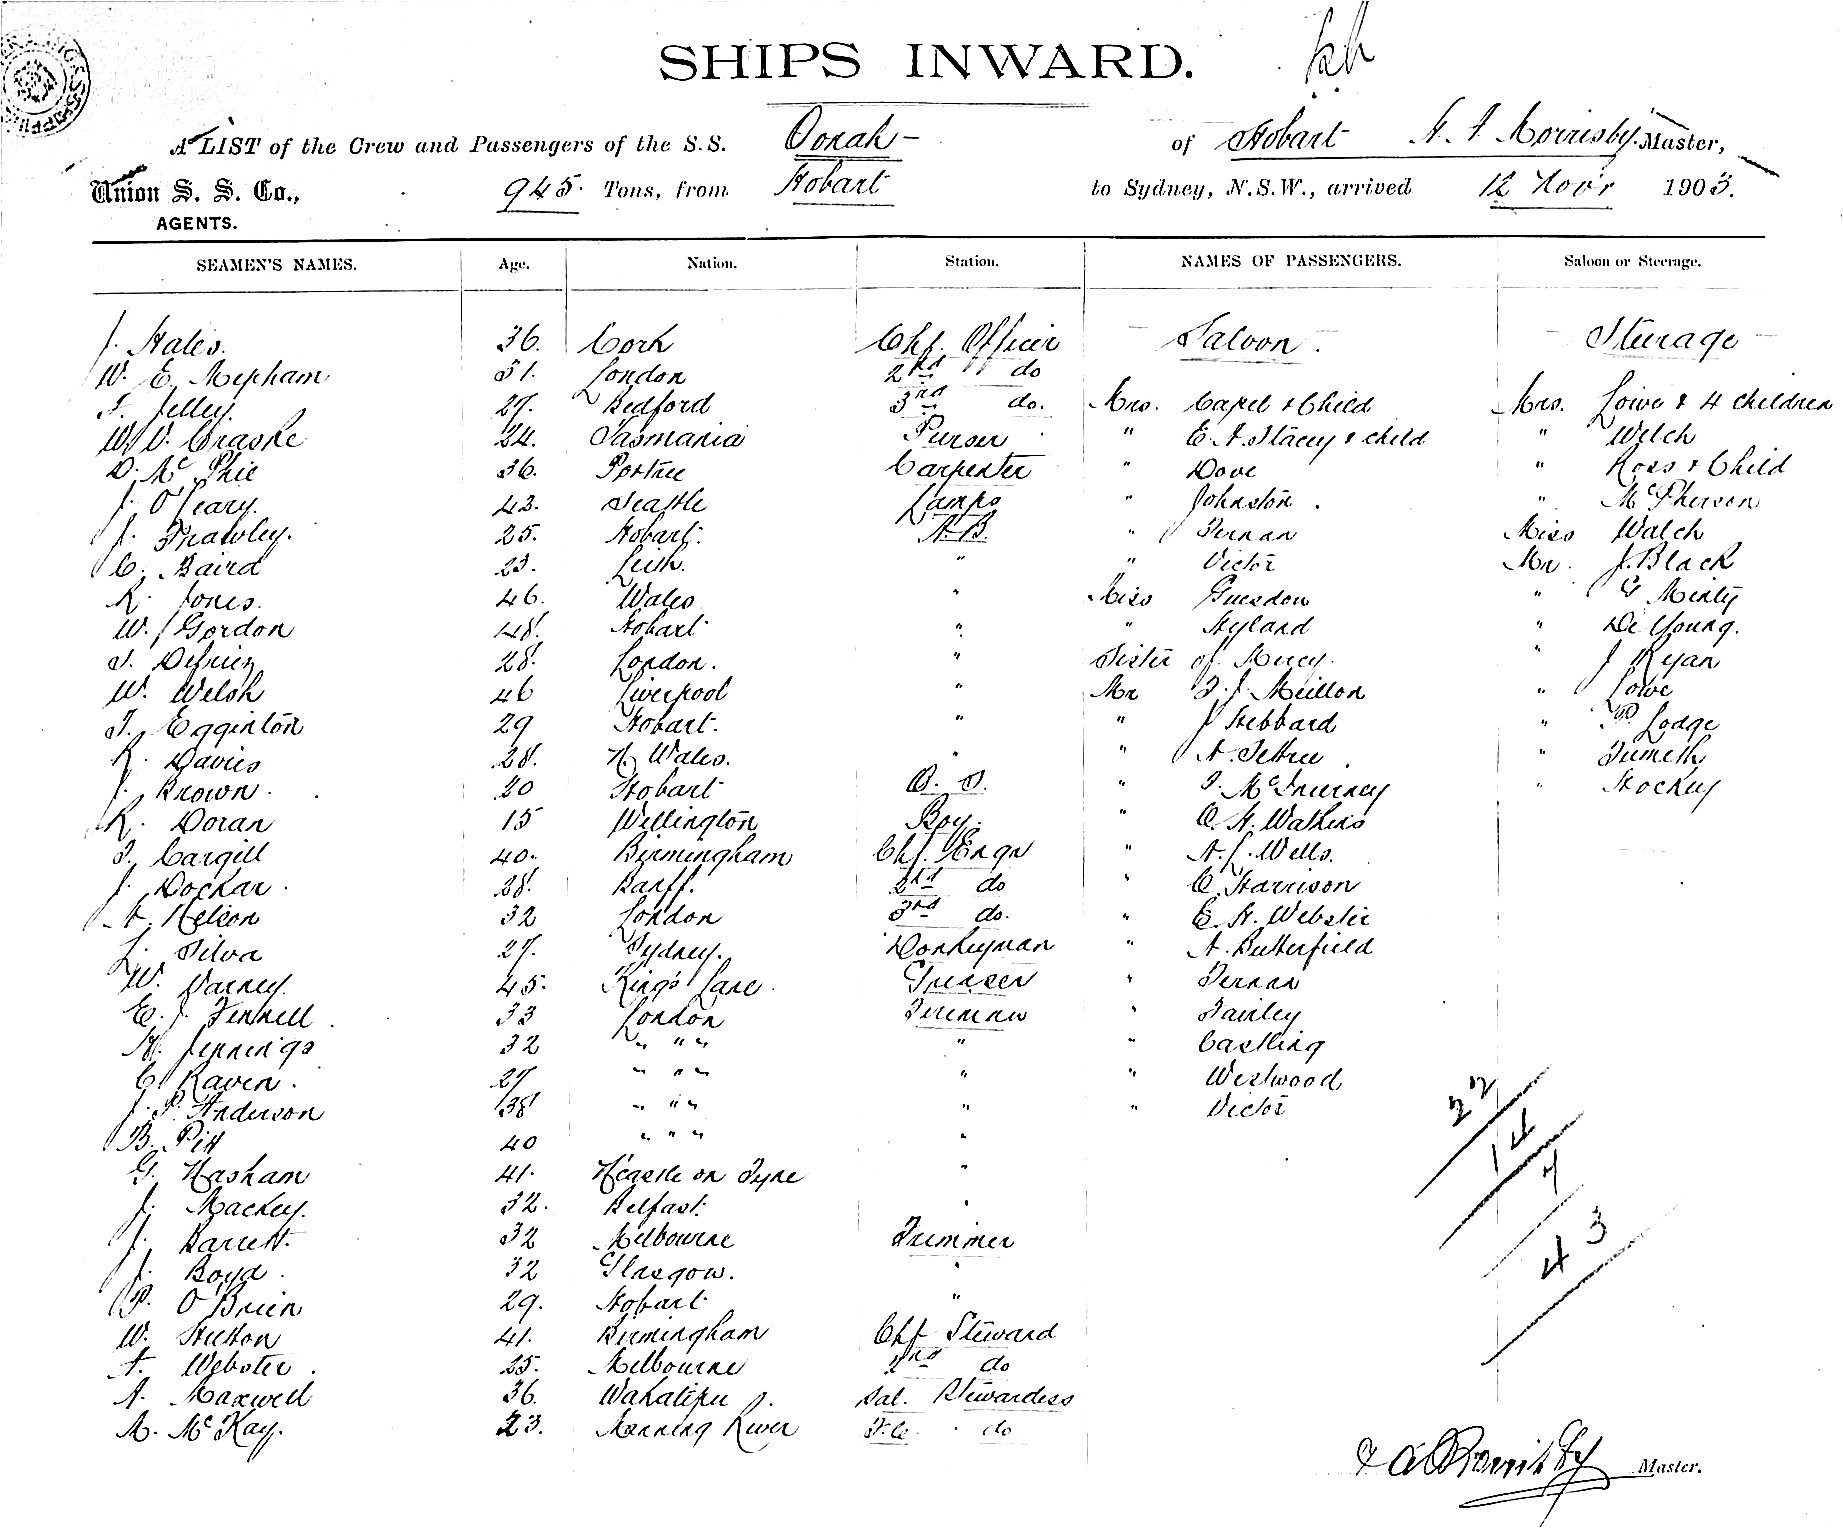 SHIPS INWARD.
A LIST of the Crew and Passengers of the S.S. Oonah of Hobart Morrisby Master,
Union S. S. Co., 945 Tons, from Hobart to Sydney, N.S.W., arrived 12 Novr 1903.
AGENTS.
SEAMEN'S NAMES. Age. Nation. Station. NAMES OF PASSENGERS. Saloon or Steerage.
J. Hales. 36. Cork Chf. Officer Saloon. Steerage
W. E. Mepham 31. London 2nd do
Jelley. 27. Bedford 3rd do. Mrs. Capel & Child Mrs. Lowe & 4 children
W. V. Craske 24. Tasmania Purser " E. A. Stacey & child " Welch
D. McPhie 36. Portree Carpenter " Dove " Ross & Child
J. O'Leary. 43. Seattle Lamps " Johnston. " McPherson
J. Frawley. 25. Hobart. A.B. " Fernan Miss Walch
C. Baird 23. Leith. " " Victor Mr. J. Black
R. Jones. 46. Wales " Miss Guesdon " G Minty
W. Gordon 48. Hobart " " Hyland " De Young.
28. London. " Sister of Mercy. " J Ryan
W. Welsh 46 Liverpool " Mr Meillon " Lowe
T. Egginton 29 Hobart. " " J Hebbard " P. Lodge
R. Davies 28. N. Wales. " " A. Pettree. "
J. Brown. 20 Hobart O. S. " McInerney " Stockey
R. Doran 15 Wellington Boy. " C. H. Watkins
T. Cargill 40. Birmingham Chf. Engr " A. J. Wells.
J. Dockar. 28. Banff. 2nd do " C. Harrison
A. Nelson 32 London 3rd do. " E. H. Webster
L. Silva 27. Sydney. Donkeyman " A. Butterfield
W. Varney. 45. King's Lane. Greaser " Fernan
E. J. Fennell. 33 London Fireman " Fairley
H. Jennings 32 " " " " " Castling
C. Raven. 27 " " " " " Westwood
J. P. Anderson 38 " " " " " Victor
B. Pitt 40 " " " "
G. Hasham 41. N'castle on Tyne "
J. Mackey. 32. Belfast. "
J. Barrett. 32 Melbourne Trimmer
J. Boyd. 32 Glasgow. "
P. O'Brien 29. Hobart "
W. Hutton 41. Birmingham Chf Steward
A. Webster. 25. Melbourne 2nd do
A. Maxwell 36. Wakatipu Sal. Stewardess
M. McKay. 23. Manning River do
22
14
7
43
Master.